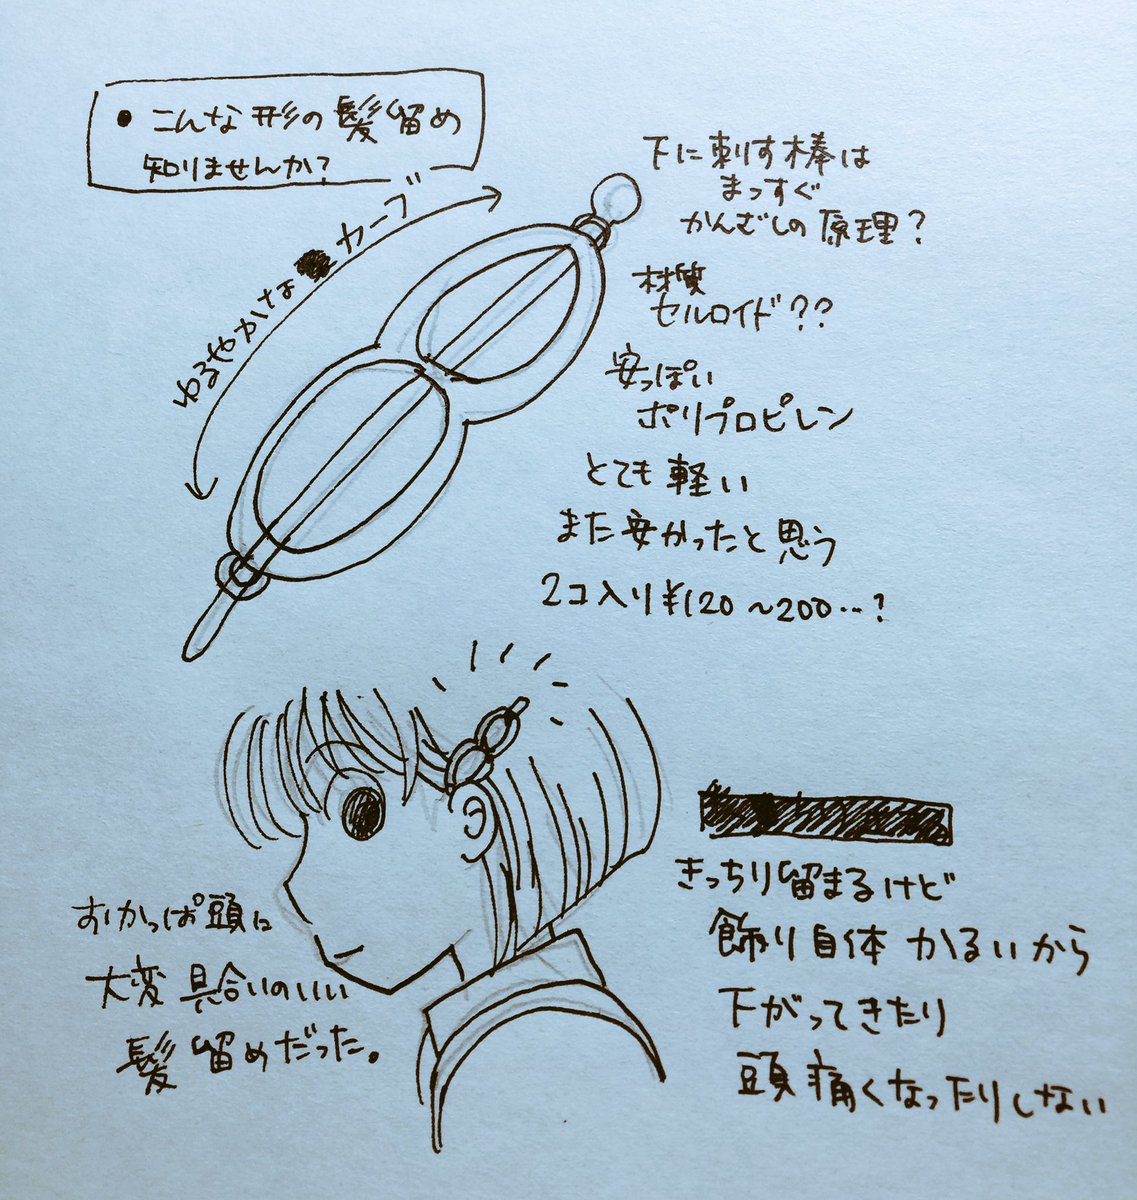 ● こんな形の髪留め
知りませんか?
ゆるやかな カーブ
下に刺す棒は
まっすぐ
かんざしの原理?
材質
セルロイド??
安っぽい
ポリプロピレン
とても軽い
また安かったと思う
2コ入り¥120~200…?
きっちり留まるけど
飾り自体かるいから
下がってきたり
頭痛くなったりしない
おかっぱ頭に
大変具合いのいい
髪留めだった。